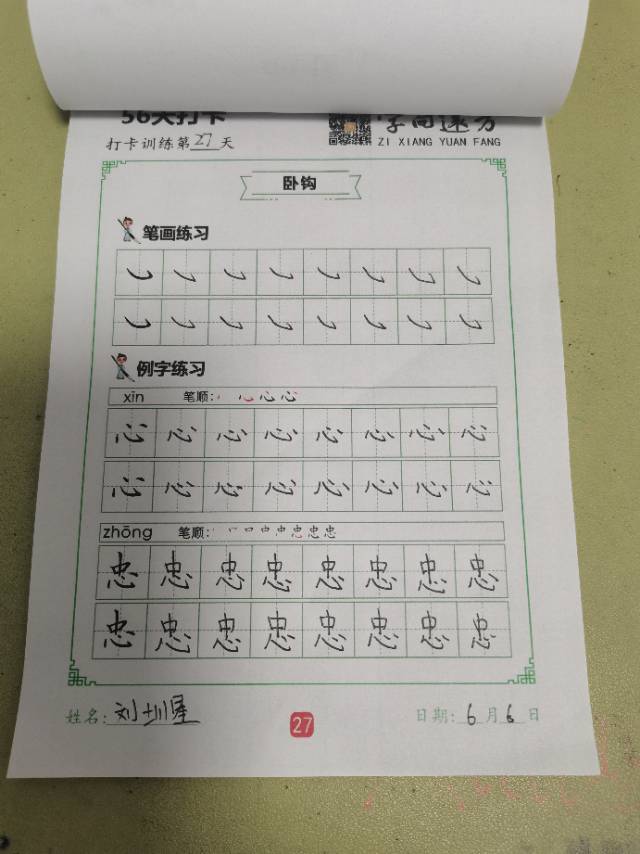 56天打卡
字向速方
ZI XIANG YUAN FANG
打卡训练第27天
卧钩
笔画练习
例字练习
xīn 笔顺:
心 心 心 心 心 心 心 心
心 心 心 心 心 心 心 心
zhōng 笔顺:
忠 忠 忠 忠 忠 忠 忠 忠
忠 忠 忠 忠 忠 忠 忠 忠
姓名: 刘
27
日期: 6月6日